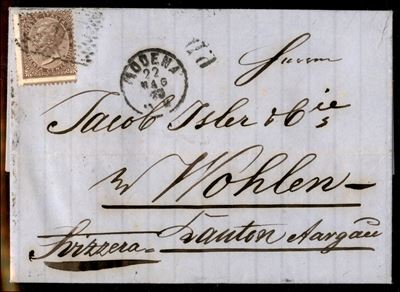 MODENA
22
MAG
PD
Herrn
Jacob Isler & Cie
in Wohlen
Svizzera Kanton Aargau